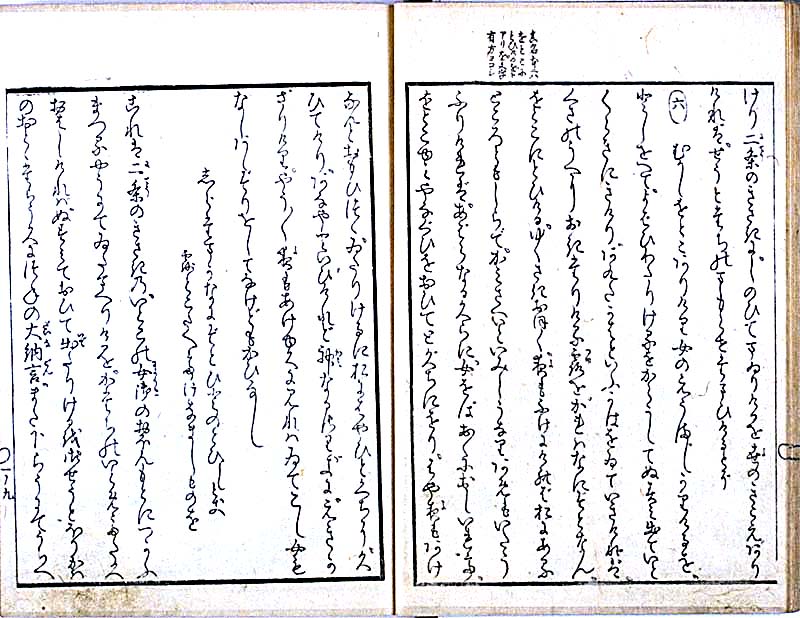 けり二条のきさきにしのひてまゐりけるを世のきこえあり
けれはせうとたちのまもらせたまひけるとそ
六 むかしをとこありけり女のえうましかりけるを
としをへてよばひわたりけるをからうしてぬすみ出ていと
くらきにきけりあくたかはといふかはをゐていきけれは
くさのうへにおきたりける露をかれはなにぞとなん
をとこにとひけるゆくさきおほく夜もふけにけれはおにある
ところともしらで神さへいといみしうなりあめもいたう
ふりけれはあばらなるくらに女をばおくにおしいれて
をとこゆみやなぐひをおひてとくちにをりはや夜もあけ
なんとおもひつゝゐたりけるにおにはやひとくちにくひ
てけりあなやといひけれと神なるさわきにえきかさ
りけりやう〳〵夜もあけゆくに見れはゐてこし女も
なしあしずりをしてなけどもかひなし
しらたまかなにぞとひとのとひしとき
露とこたへてけなましものを
これは二条のきさきのいとこの女御の御もとにつかう
まつるやうにてゐたまへりけるをかたちのいとめてたく
おはしけれはぬすみておひて出たりけるを御せうとほりかは
のおとゝたらうくにつねの大納言またけらうにてうちへ